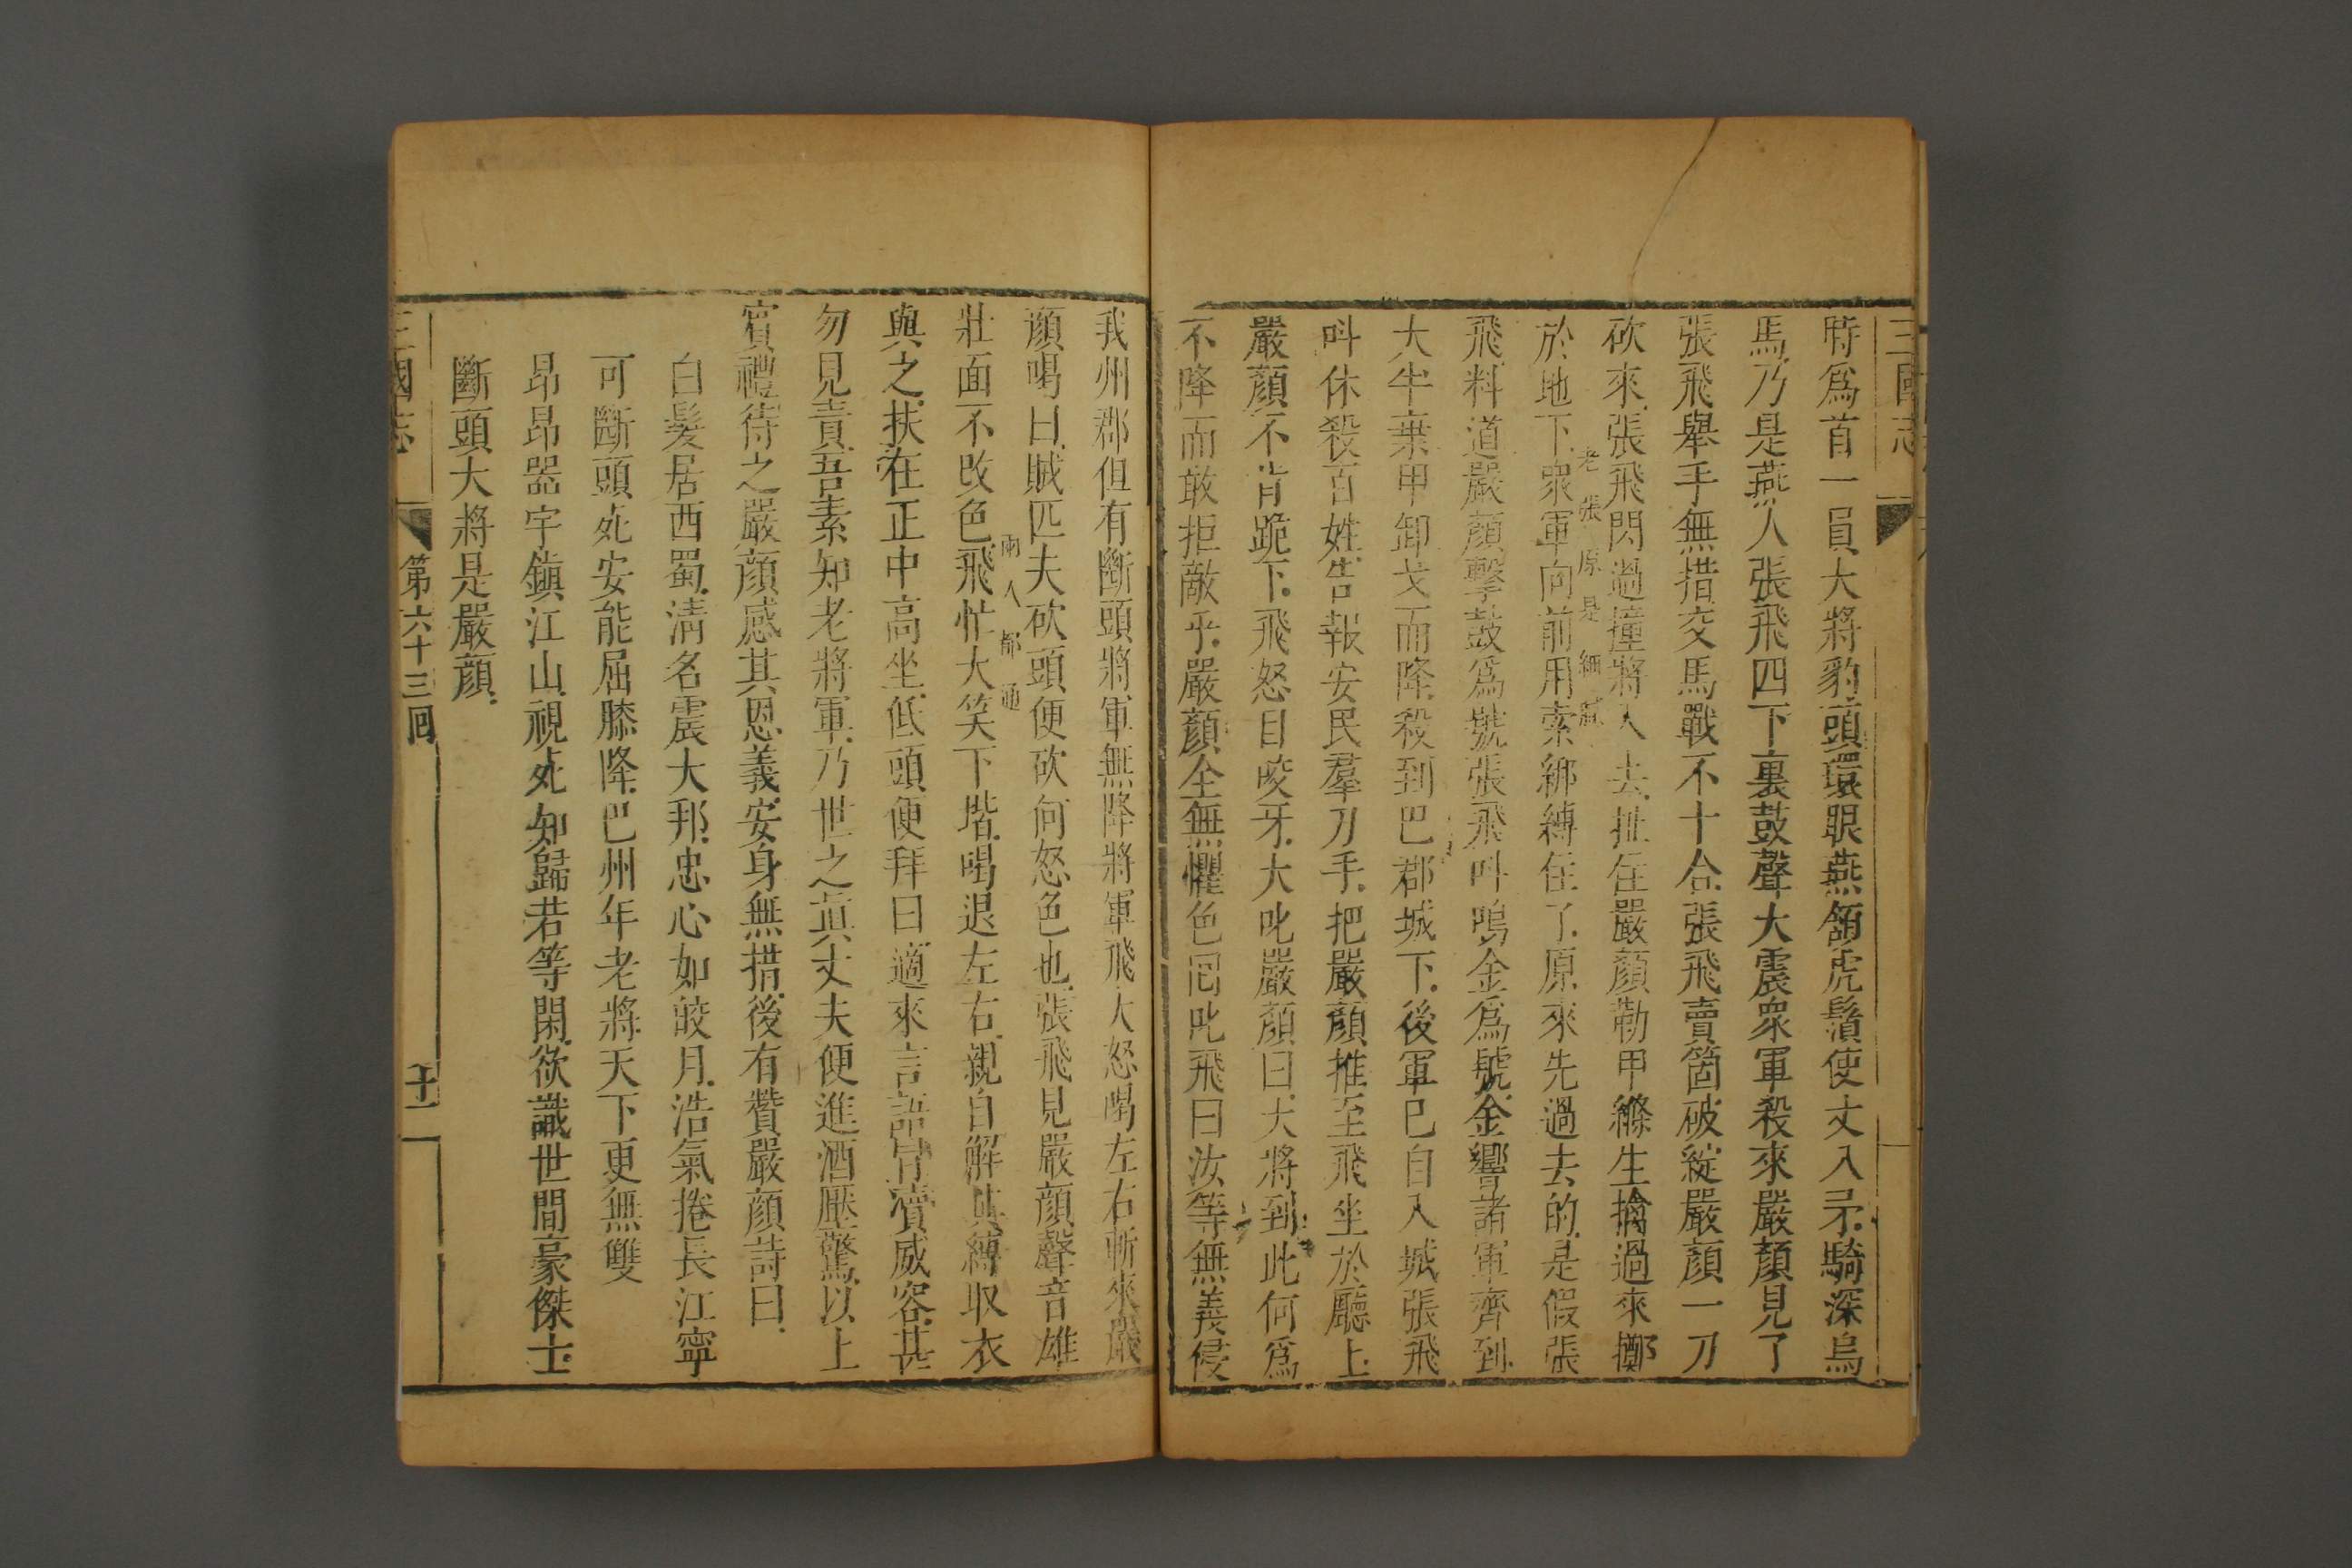 三國志
時爲首一員大將豹頭環眼燕頷虎鬚使丈八矛騎深烏
馬乃是燕人張飛四下裏鼓聲大震衆軍殺來嚴顏見了
張飛舉手無措交馬戰不十合張飛賣箇破綻嚴顏一刀
砍來張飛閃過撞將入去扯住嚴顏勒甲縧生擒過來擲
老張原是細
於地下衆軍向前用索綁縛住了原來先過去的是假張
飛料道嚴顏擊鼓爲號張飛叫鳴金爲號金響諸軍齊到
大半棄甲卸戈而降殺到巴郡城下後軍已自入城張飛
叫休殺百姓告報安民羣刀手把嚴顏推至飛坐於廳上
嚴顏不肯跪下飛怒目咬牙大叱嚴顏曰大將到此何爲
不降而敢拒敵乎嚴顏全無懼色回叱飛曰汝等無義侵
我州郡但有斷頭將軍無降將軍飛大怒喝左右斬來嚴
顏喝曰賊匹夫砍頭便砍何怒色也張飛見嚴顏聲音雄
兩人都通
壯面不改色飛忙大笑下堦喝退左右親自解其縛取衣
與之扶在正中高坐低頭便拜曰適來言語冒瀆威容甚
勿見責吾素知老將軍乃世之眞丈夫便進酒壓驚以上
賓禮待之嚴顏感其恩義安身無措後有贊嚴顏詩曰
白髮居西蜀淸名震大邦忠心如皎月浩氣捲長江寧
可斷頭死安能屈膝降巴州年老將天下更無雙
昂昂器宇鎭江山視死知歸若等閑欲識世間豪傑士
斷頭大將是嚴顏
三國志 第六十三回 十一